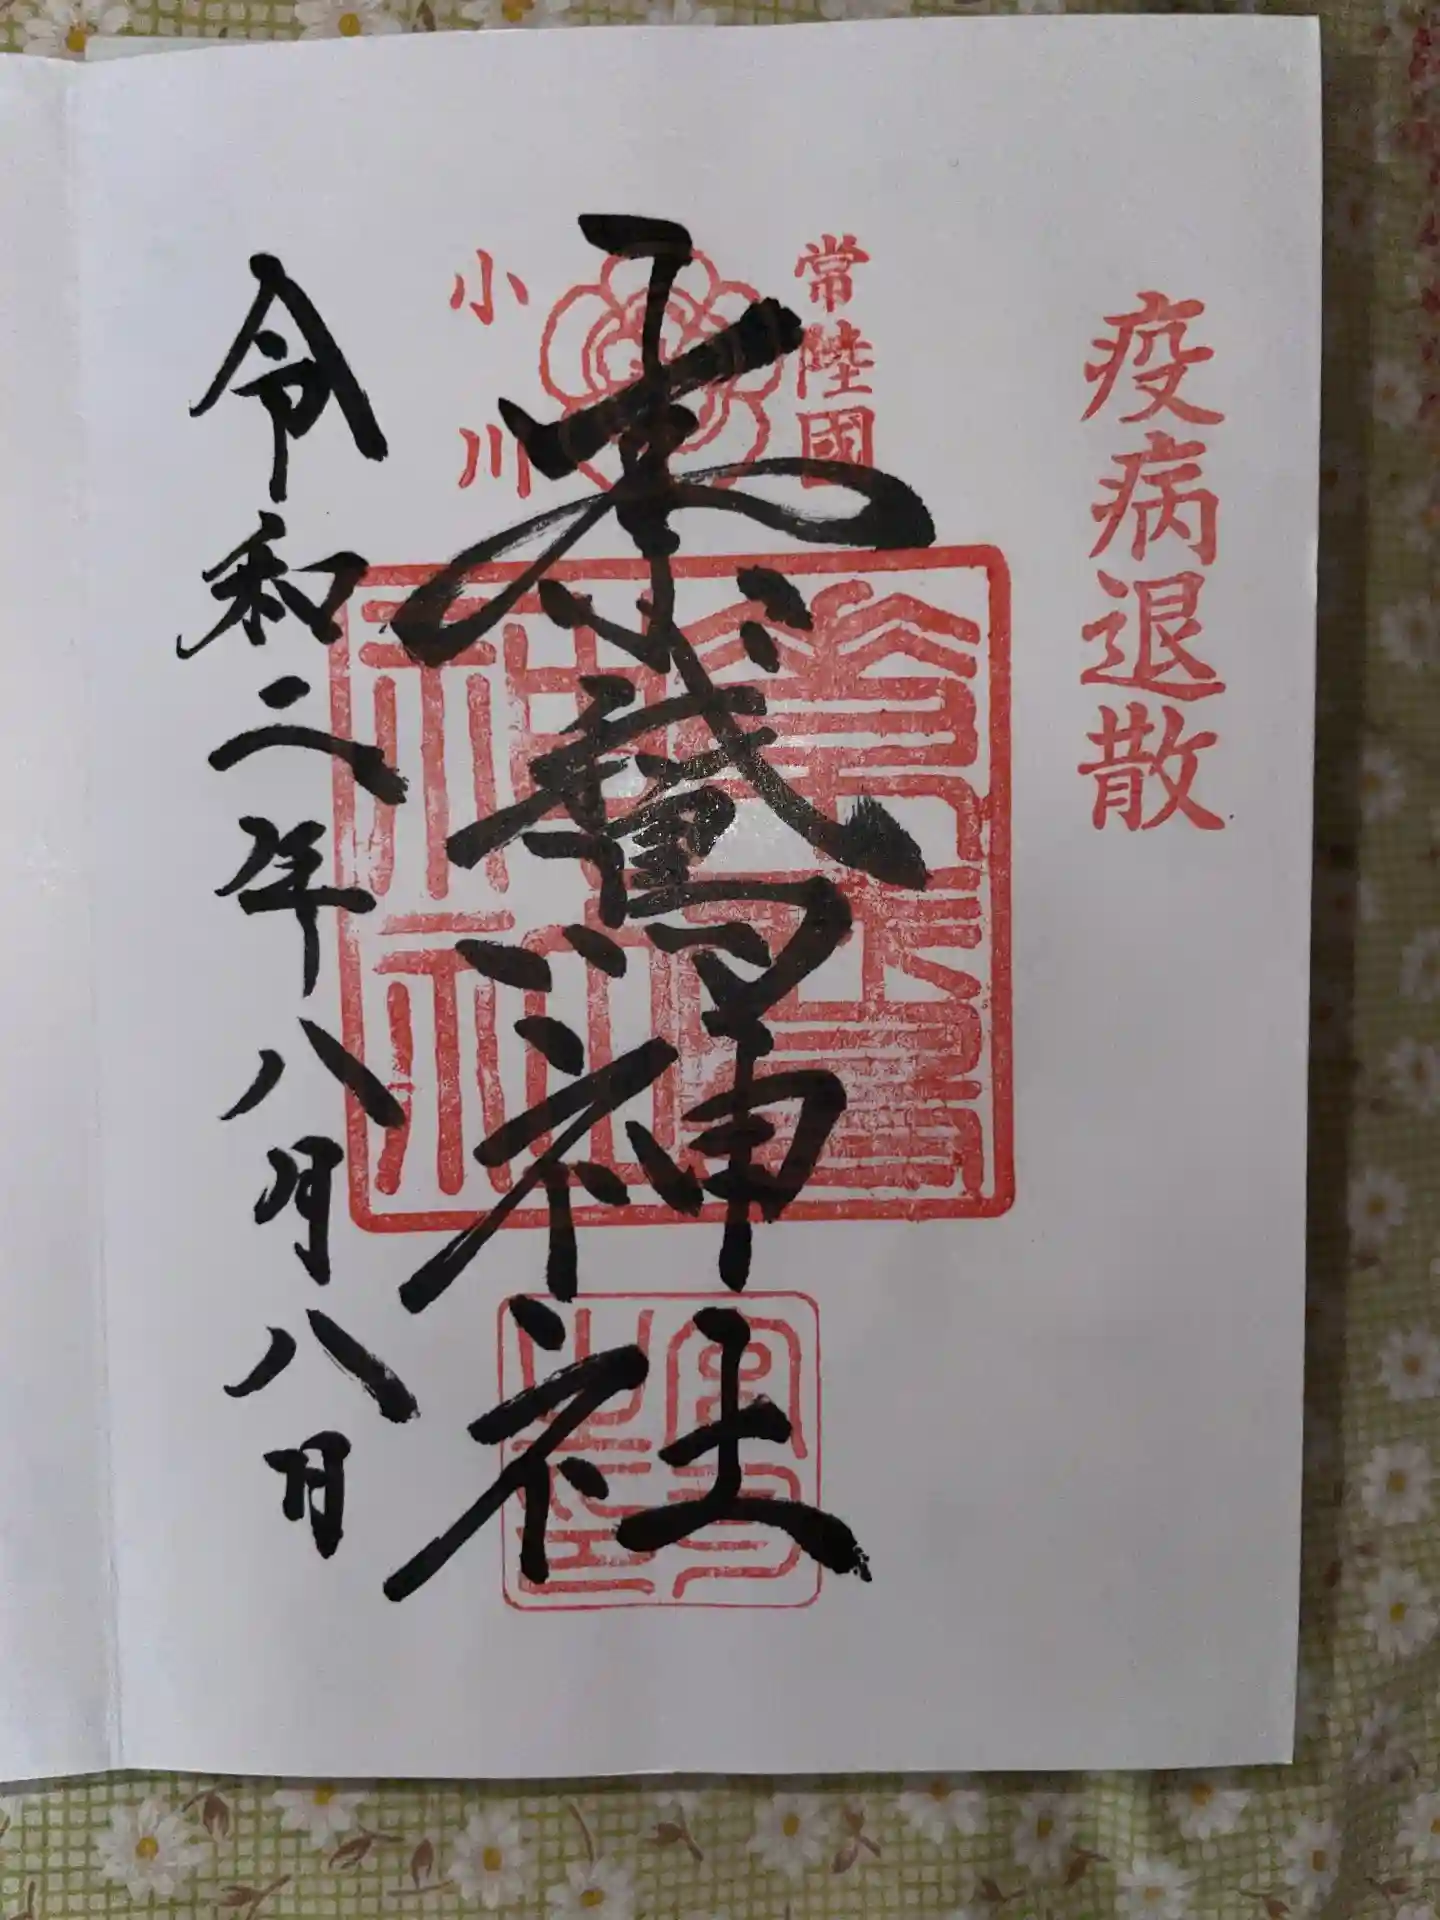 疫病退散
常陸國
素鵞神社
小川
令和二年八月八日
宮司之印